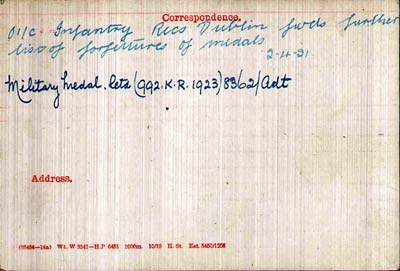 Correspondence.
O i/c. Infantry Recs Dublin fwds further
list of forfeitures of medals
2-4-31
Military Medal. Retd (992.K.R.1923) 8362/Adt
Address.
Wt. W 5247—H.P 6451 2000m. 10/19 H. St